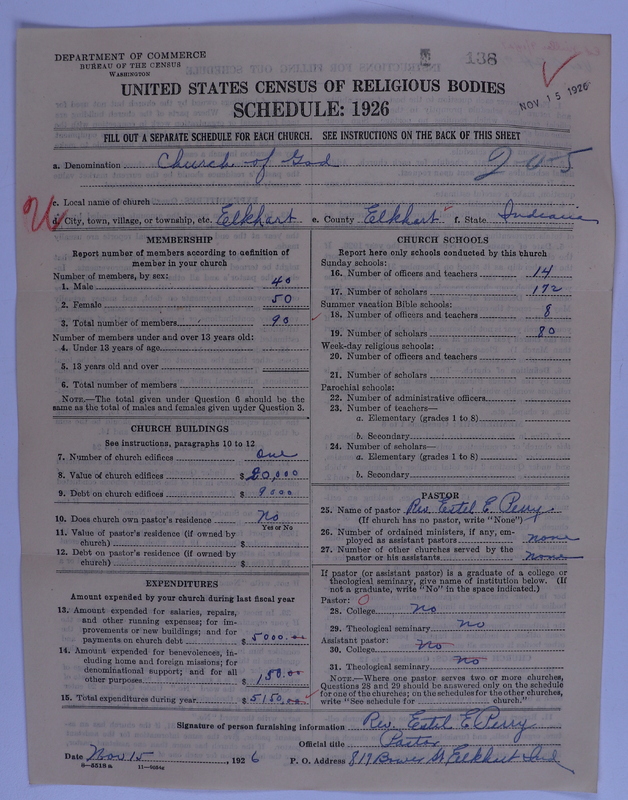 138
DEPARTMENT OF COMMERCE
BUREAU OF THE CENSUS
WASHINGTON
UNITED STATES CENSUS OF RELIGIOUS BODIES
SCHEDULE: 1926
NOV 15 1926
FILL OUT A SEPARATE SCHEDULE FOR EACH CHURCH. SEE INSTRUCTIONS ON THE BACK OF THIS SHEET
a. Denomination Church of God
205
c. Local name of church
d. City, town, village, or township, etc. Elkhart e. County Elkhart f. State Indiana
MEMBERSHIP
Report number of members according to definition of
member in your church
Number of members, by sex:
1. Male 40
2. Female 50
3. Total number of members 90
Number of members under and over 13 years old:
4. Under 13 years of age
5. 13 years old and over
6. Total number of members
NOTE.—The total given under Question 6 should be
same as the total of males and females given under Question 3.
CHURCH BUILDINGS
See instructions, paragraphs 10 to 12
7. Number of church edifices one
8. Value of church edifices $20,000
9. Debt on church edifices $9000
10. Does church own pastor's residence No
Yes or No
11. Value of pastor's residence (if owned by
church) $
12. Debt on pastor's residence (if owned by
church) $
EXPENDITURES
Amount expended by your church during last fiscal year
13. Amount expended for salaries, repairs,
and other running expenses; for im-
provements or new buildings; and for
payments on church debt $5000.00
14. Amount expended for benevolences, in-
cluding home and foreign missions; for
denominational support; and for all
other purposes $150.00
15. Total expenditures during year $5150.00
CHURCH SCHOOLS
Report here only schools conducted by this church
Sunday schools:
16. Number of officers and teachers 14
17. Number of scholars 172
Summer vacation Bible schools:
18. Number of officers and teachers 8
19. Number of scholars 80
Week-day religious schools:
20. Number of officers and teachers
21. Number of scholars
Parochial schools:
22. Number of administrative officers
23. Number of teachers—
a. Elementary (grades 1 to 8)
b. Secondary
24. Number of scholars—
a. Elementary (grades 1 to 8)
b. Secondary
PASTOR
25. Name of pastor Rev. Estel E. Perry.
(If church has no pastor, write "None")
26. Number of ordained ministers, if any, em-
ployed as assistant pastors none
27. Number of other churches served by the
pastor or his assistants none
If pastor (or assistant pastor) is a graduate of a college or
theological seminary, give name of institution below. (If
not a graduate, write "No" in the space indicated.)
Pastor: O
28. College no
29. Theological seminary no
Assistant pastor:
30. College no
31. Theological seminary no
NOTE.—Where one pastor serves two or more churches,
Questions 28 and 29 should be answered only on the schedule
for one of the churches; on the schedules for the other churches,
write "See schedule for church."
Signature of person furnishing information Rev. Estel E. Perry
Official title Pastor
Date Nov 15, 1926 P. O. Address 819 Bower St Elkhart Ind
8—5518 a 11—9034